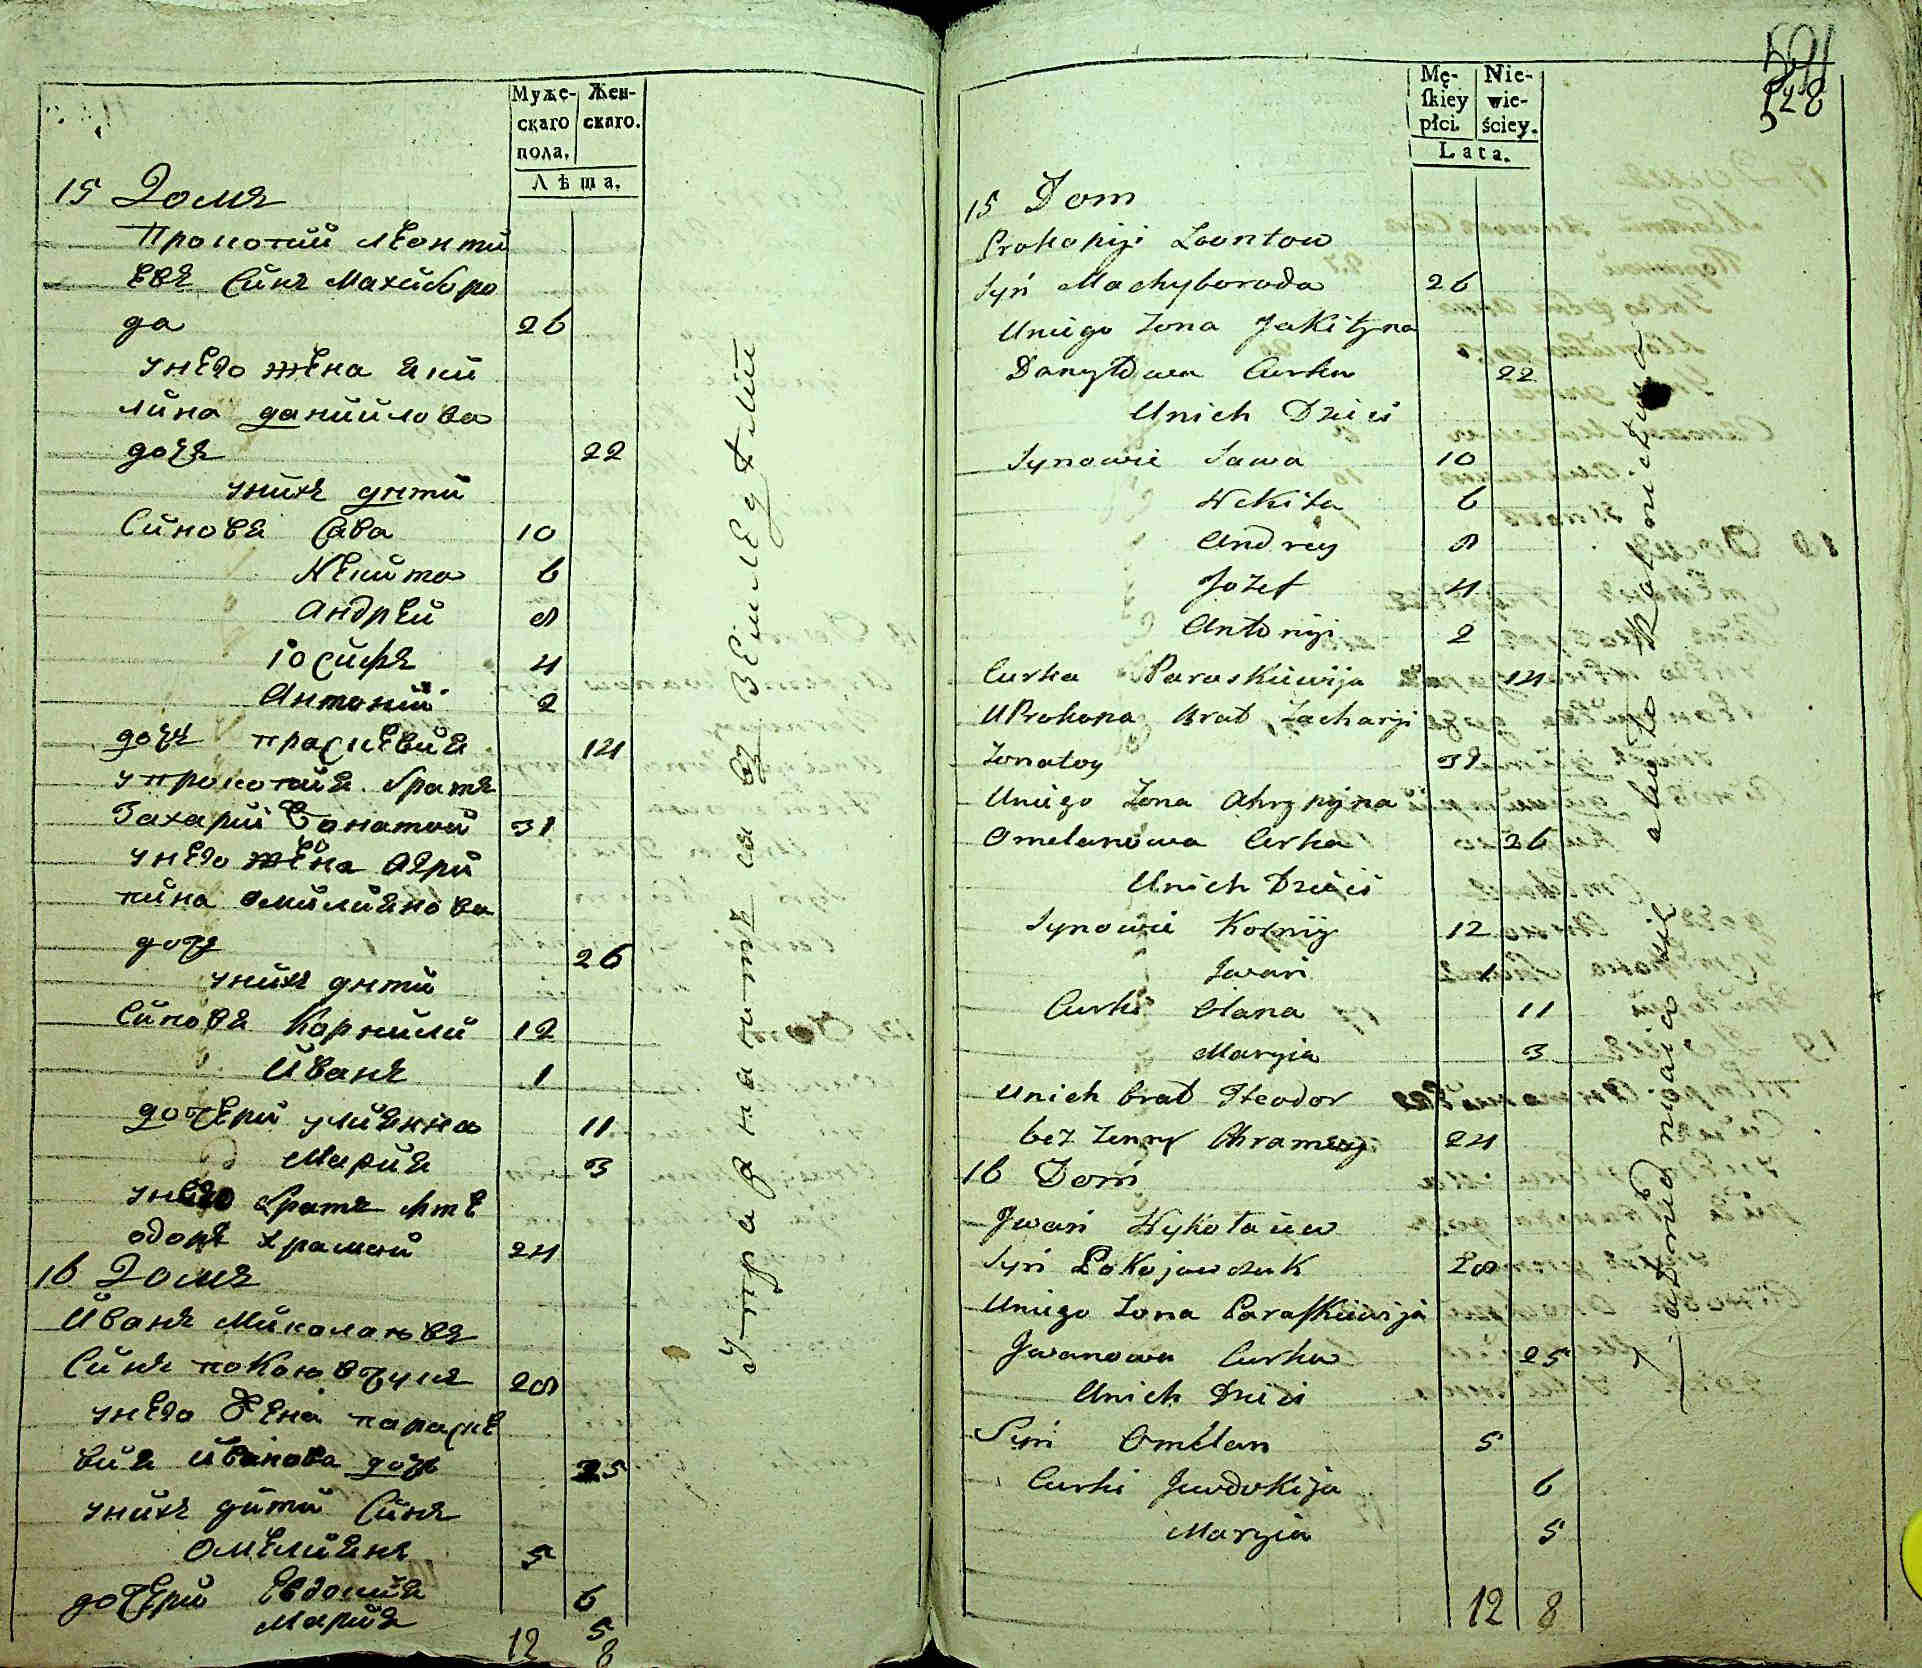 Муже-
скаго
пола.
Жен-
скаго.
Лѣта.
15 Домъ
Прокопий Леонти
евъ Синъ Махибро
да 26
у него жена Аки
лина даниилова
дочъ 22
у нихъ дѣти
Синовъ Сава 10
Некита 6
Андрей 8
Іосифъ 4
Антоний 2
дочъ праскевия 14
у прокопия братъ
Захарий Жонатой 31
у него жена Агри
пина Омилиянова
дочъ 26
у нихъ дѣти
Синовъ Корнили 12
Иванъ 1
дочери улиянна 11
Мария 3
у него братъ Фте
одоръ храмой 24
16 Домъ
Иванъ Миколаевъ
Синъ покоювчукъ 28
у него Жена параске
вия Иванова дочъ 25
у нихъ дити Синъ
Омелиянъ 5
дочери Евдокия 6
Мария 5
12 8
501
528
Mę-
skiey
płci.
Nie-
wie-
ściey.
Lata.
15 Dom
Prokopiji Leontow
Syń Machyboroda 26
Uniego Zona Jakilyna
Danyłowa Curka 22
Unich Dzieci
Synowie Sawa 10
Nekita 6
Andrey 8
Jozef 4
Antoniji 2
Curka Paraskiewija 14
U Prokopa Brat Zacharji
Zonatoy 31
Uniego Zona Ahrypyna
Omelanowa Curka 26
Unich Dzieci
Synowie Korniy 12
Jwan 1
Curki Olana 11
Maryia 3
Unich brat Fteodor
bez Zenny Chramoy 24
16 Dom
Jwan Nykołaiew
Syn Pokojowczuk 28
Uniego Zona Paraskiewija
Jwanowa Curka 25
Unich Dzieci
Syn Omelan 5
Curki Jewdokija 6
Maryia 5
12 8